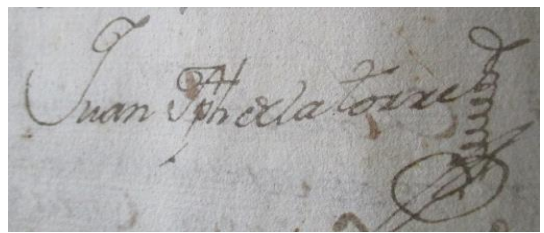 Juan Jph de la torre